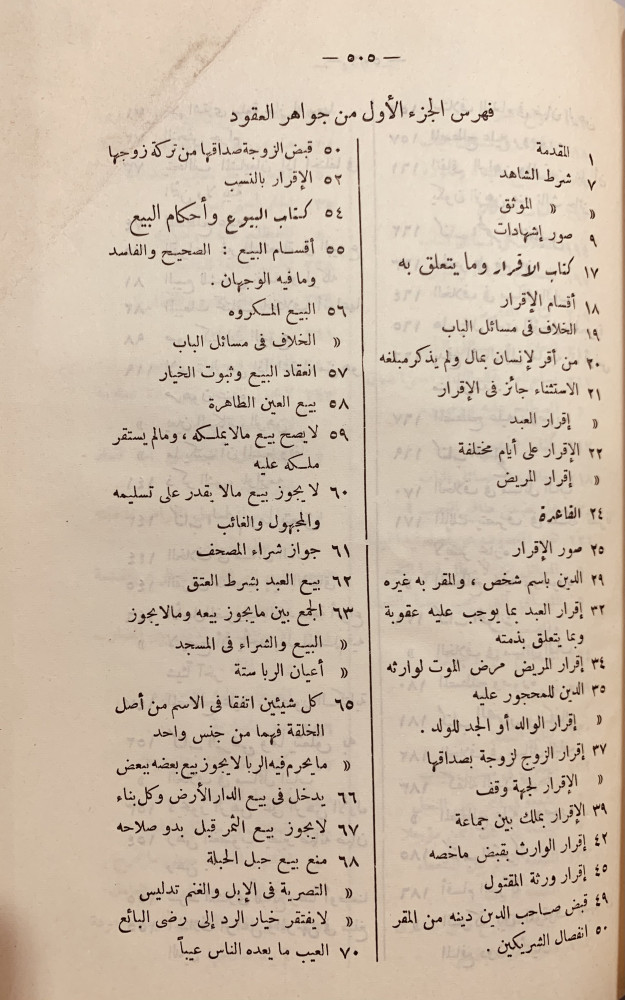 — ٥٠٥ —
فهرس الجزء الأول من جواهر العقود
١ المقدمة
٧ شرط الشاهد
« « الموثق
٩ صور إشهادات
١٧ كتاب الاقرار وما يتعلق به
١٨ أقسام الإقرار
١٩ الخلاف فى مسائل الباب
٢٠ من أقر لإنسان بمال ولم يذكر مبلغه
٢١ الاستثناء جائز فى الإقرار
« إقرار العبد
٢٢ الإقرار على أيام مختلفة
« إقرار المريض
٢٤ القاعدة
٢٥ صور الإقرار
٢٩ الدين باسم شخص ، والمقر به غيره
٣٢ إقرار العبد بما يوجب عليه عقوبة
وبما يتعلق بذمته
٣٤ إقرار المريض مرض الموت لوارثه
٣٥ الدين للمحجور عليه
« إقرار الوالد أو الجد للولد .
٣٧ إقرار الزوج لزوجة بصداقها
« الإقرار لجهة وقف
٣٩ الإقرار بملك بين جماعة
٤٢ إقرار الوارث بقبض ماخصه
٤٥ إقرار ورثة المقتول
٤٩ قبض صاحب الدين دينه من المقر
٥٠ انفصال الشريكين .
٥٠ قبض الزوجة صداقها من تركة زوجها
٥٢ الإقرار بالنسب
٥٤ كتاب البيوع وأحكام البيع
٥٥ أقسام البيع : الصحيح والفاسد
وما فيه الوجهان .
٥٦ البيع المكروه
« الخلاف فى مسائل الباب
٥٧ انعقاد البيع وثبوت الخيار
٥٨ بيع العين الطاهرة
٥٩ لا يصح بيع مالا يملكه ، ومالم يستقر
ملكه عليه
٦٠ لا يجوز بيع مالا يقدر على تسليمه
والمجهول والغائب
٦١ جواز شراء المصحف
٦٢ بيع العبد بشرط العتق
٦٣ الجمع بين مايجوز بيعه ومالا يجوز
« البيع والشراء فى المسجد
« أعيان الربا ستة
٦٥ كل شيئين اتفقا فى الاسم من أصل
الخلقة فهما من جنس واحد
« ما يحرم فيه الربا لا يجوز بيع بعضه ببعض
٦٦ يدخل فى بيع الدار الأرض وكل بناء
٦٧ لا يجوز بيع الثمر قبل بدو صلاحه
٦٨ منع بيع حبل الحبلة
« التصرية فى الإبل والغنم تدليس
« لا يفتقر خيار الرد إلى رضى البائع
٧٠ العيب ما يعده الناس عيباً